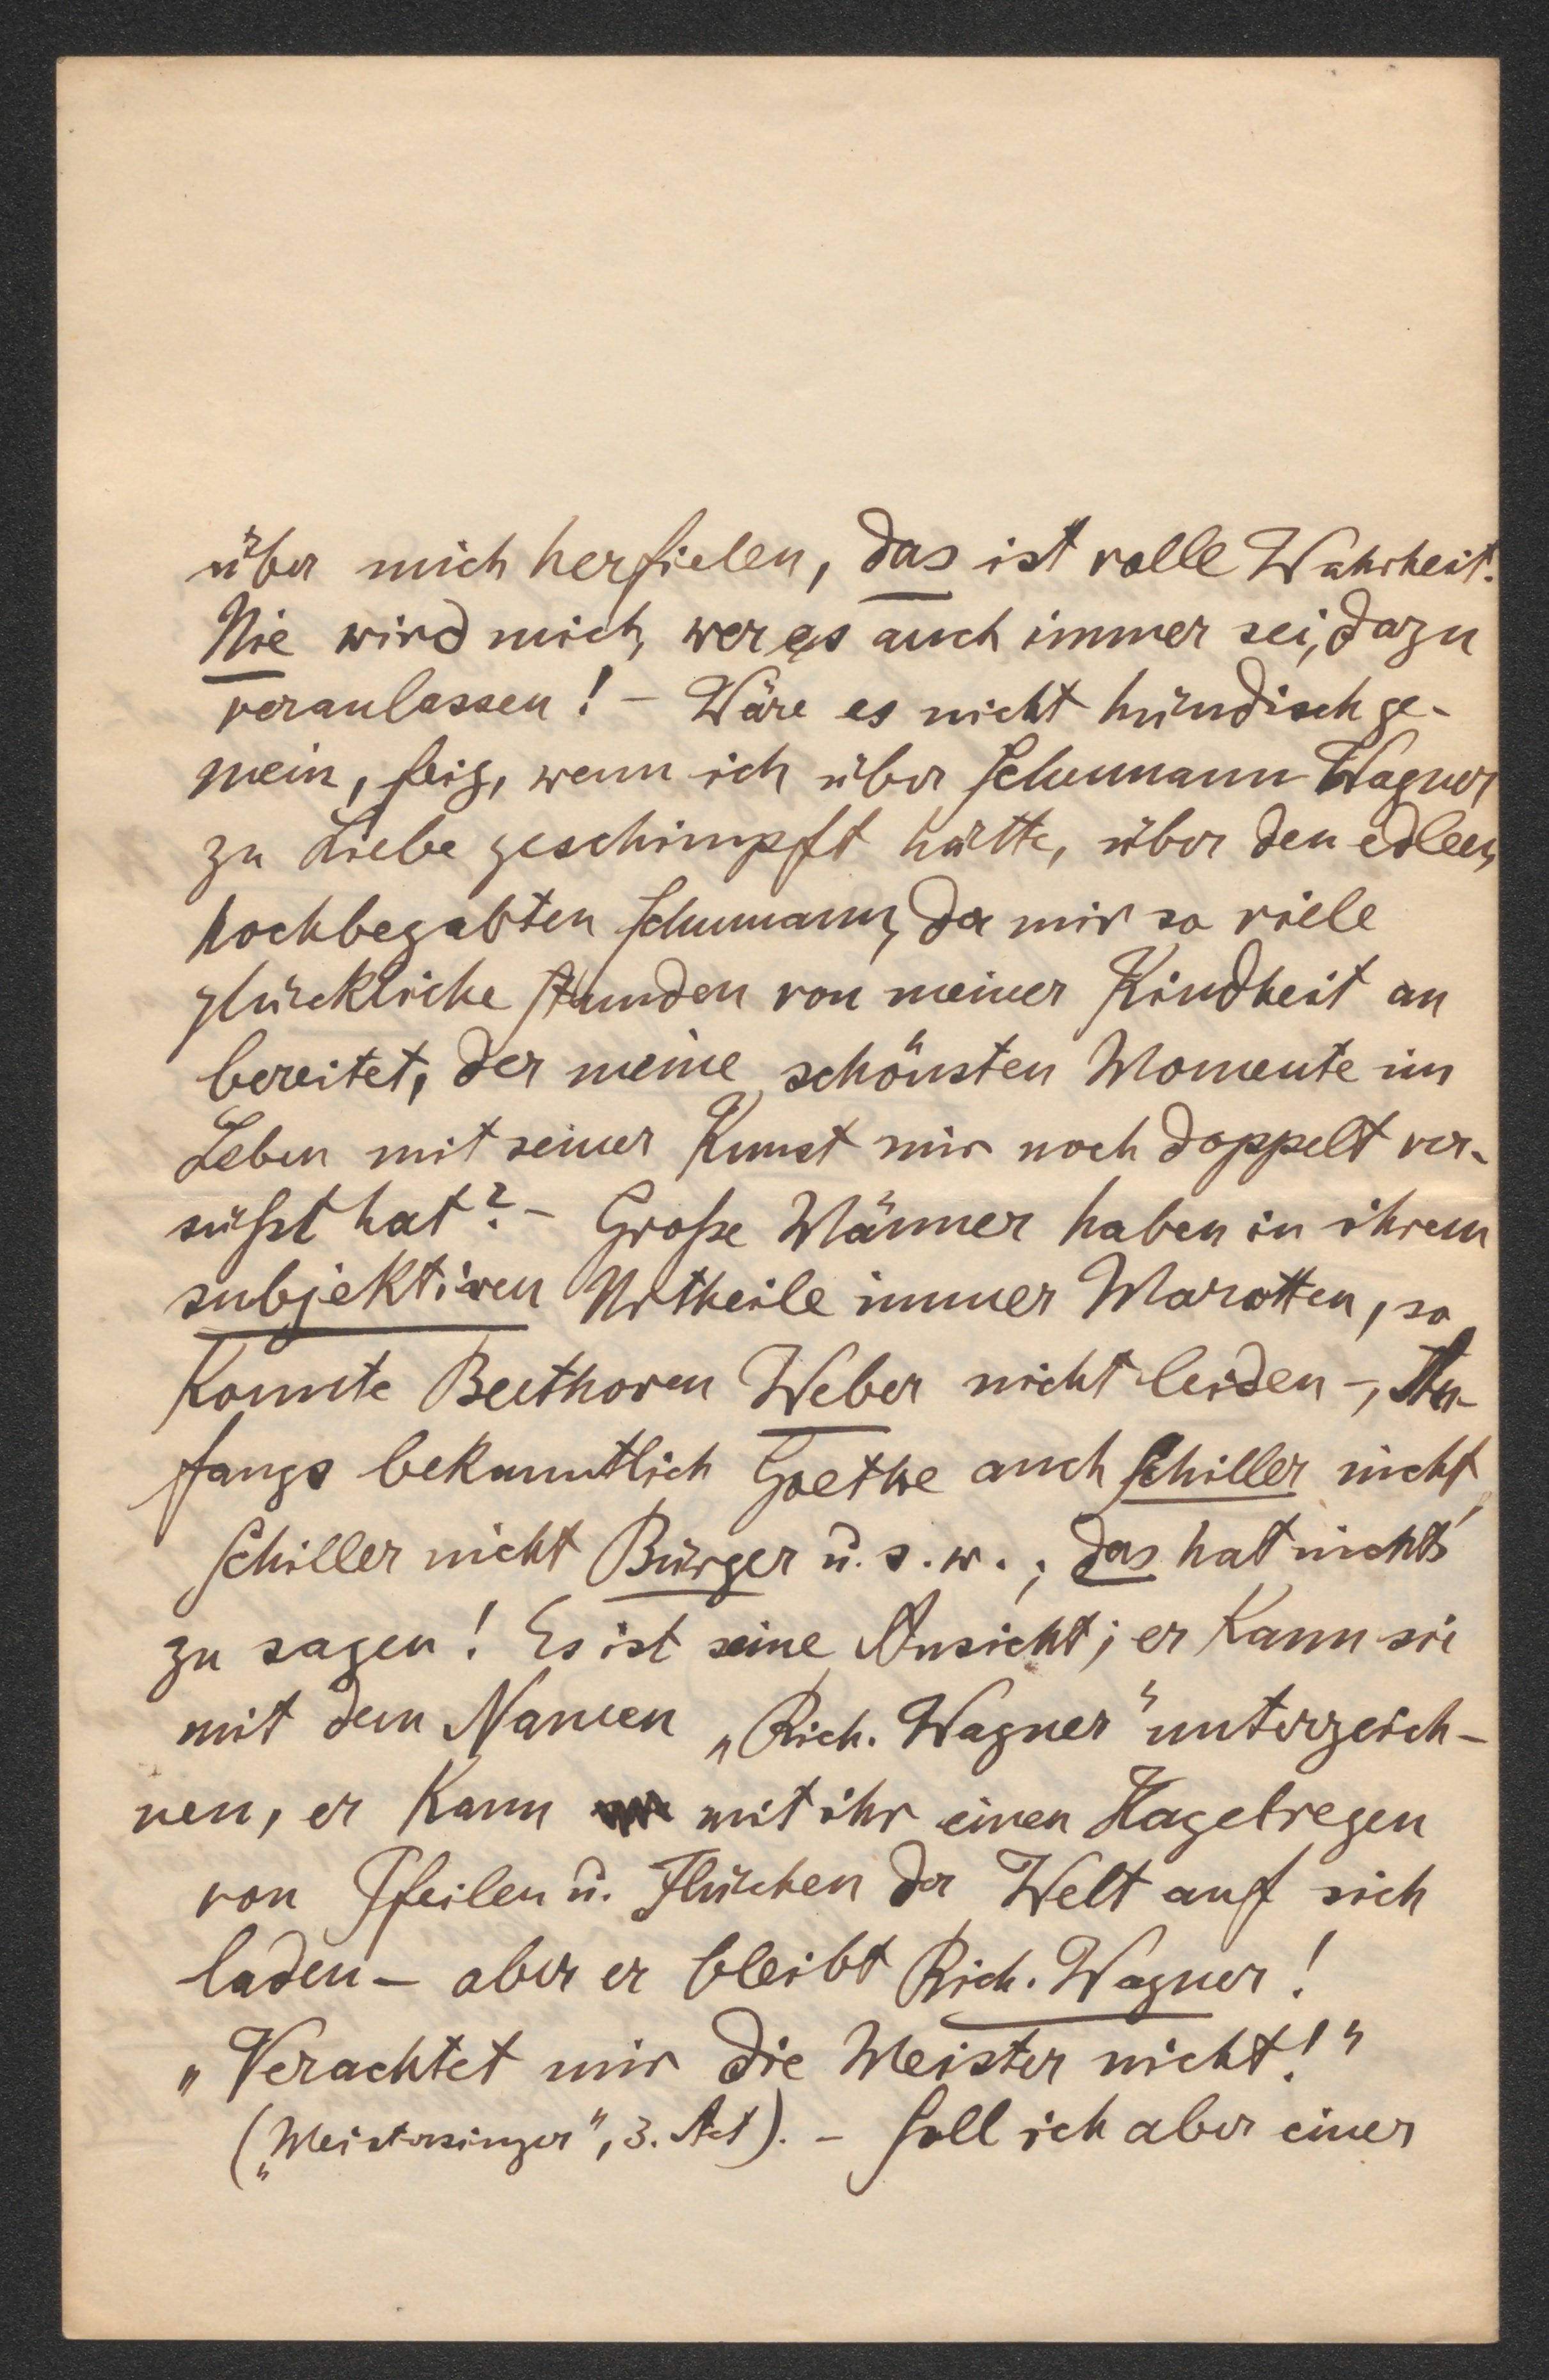 über mich herfielen, das ist volle Wahrheit.
Nie wird mich, wer es auch immer sei, dazu
veranlassen! – Wäre es nicht hündisch ge-
mein, feig, wenn ich über Schumann Wagner
zu Liebe geschimpft hätte, über den edlen,
hochbegabten Schumann, der mir so viele
glückliche Stunden von meiner Kindheit an
bereitet, der meine schönsten Momente im
Leben mit seiner Kunst mir noch doppelt ver-
süßt hat? – Große Männer haben in ihrem
subjektiven Urtheile immer Marotten, so
konnte Beethoven Weber nicht leiden –, An-
fangs bekanntlich Goethe auch Schiller nicht,
Schiller nicht Bürger u. s. w.; das hat nichts
zu sagen! Es ist seine Ansicht; er kann sie
mit dem Namen „Rich. Wagner" unterzeich-
nen, er kann mit ihr einen Hagelregen
von Pfeilen u. Flüchen der Welt auf sich
laden – aber er bleibt Rich. Wagner!
„Verachtet mir die Meister nicht!"
(„Meistersinger", 3. Act). – Soll ich aber einer